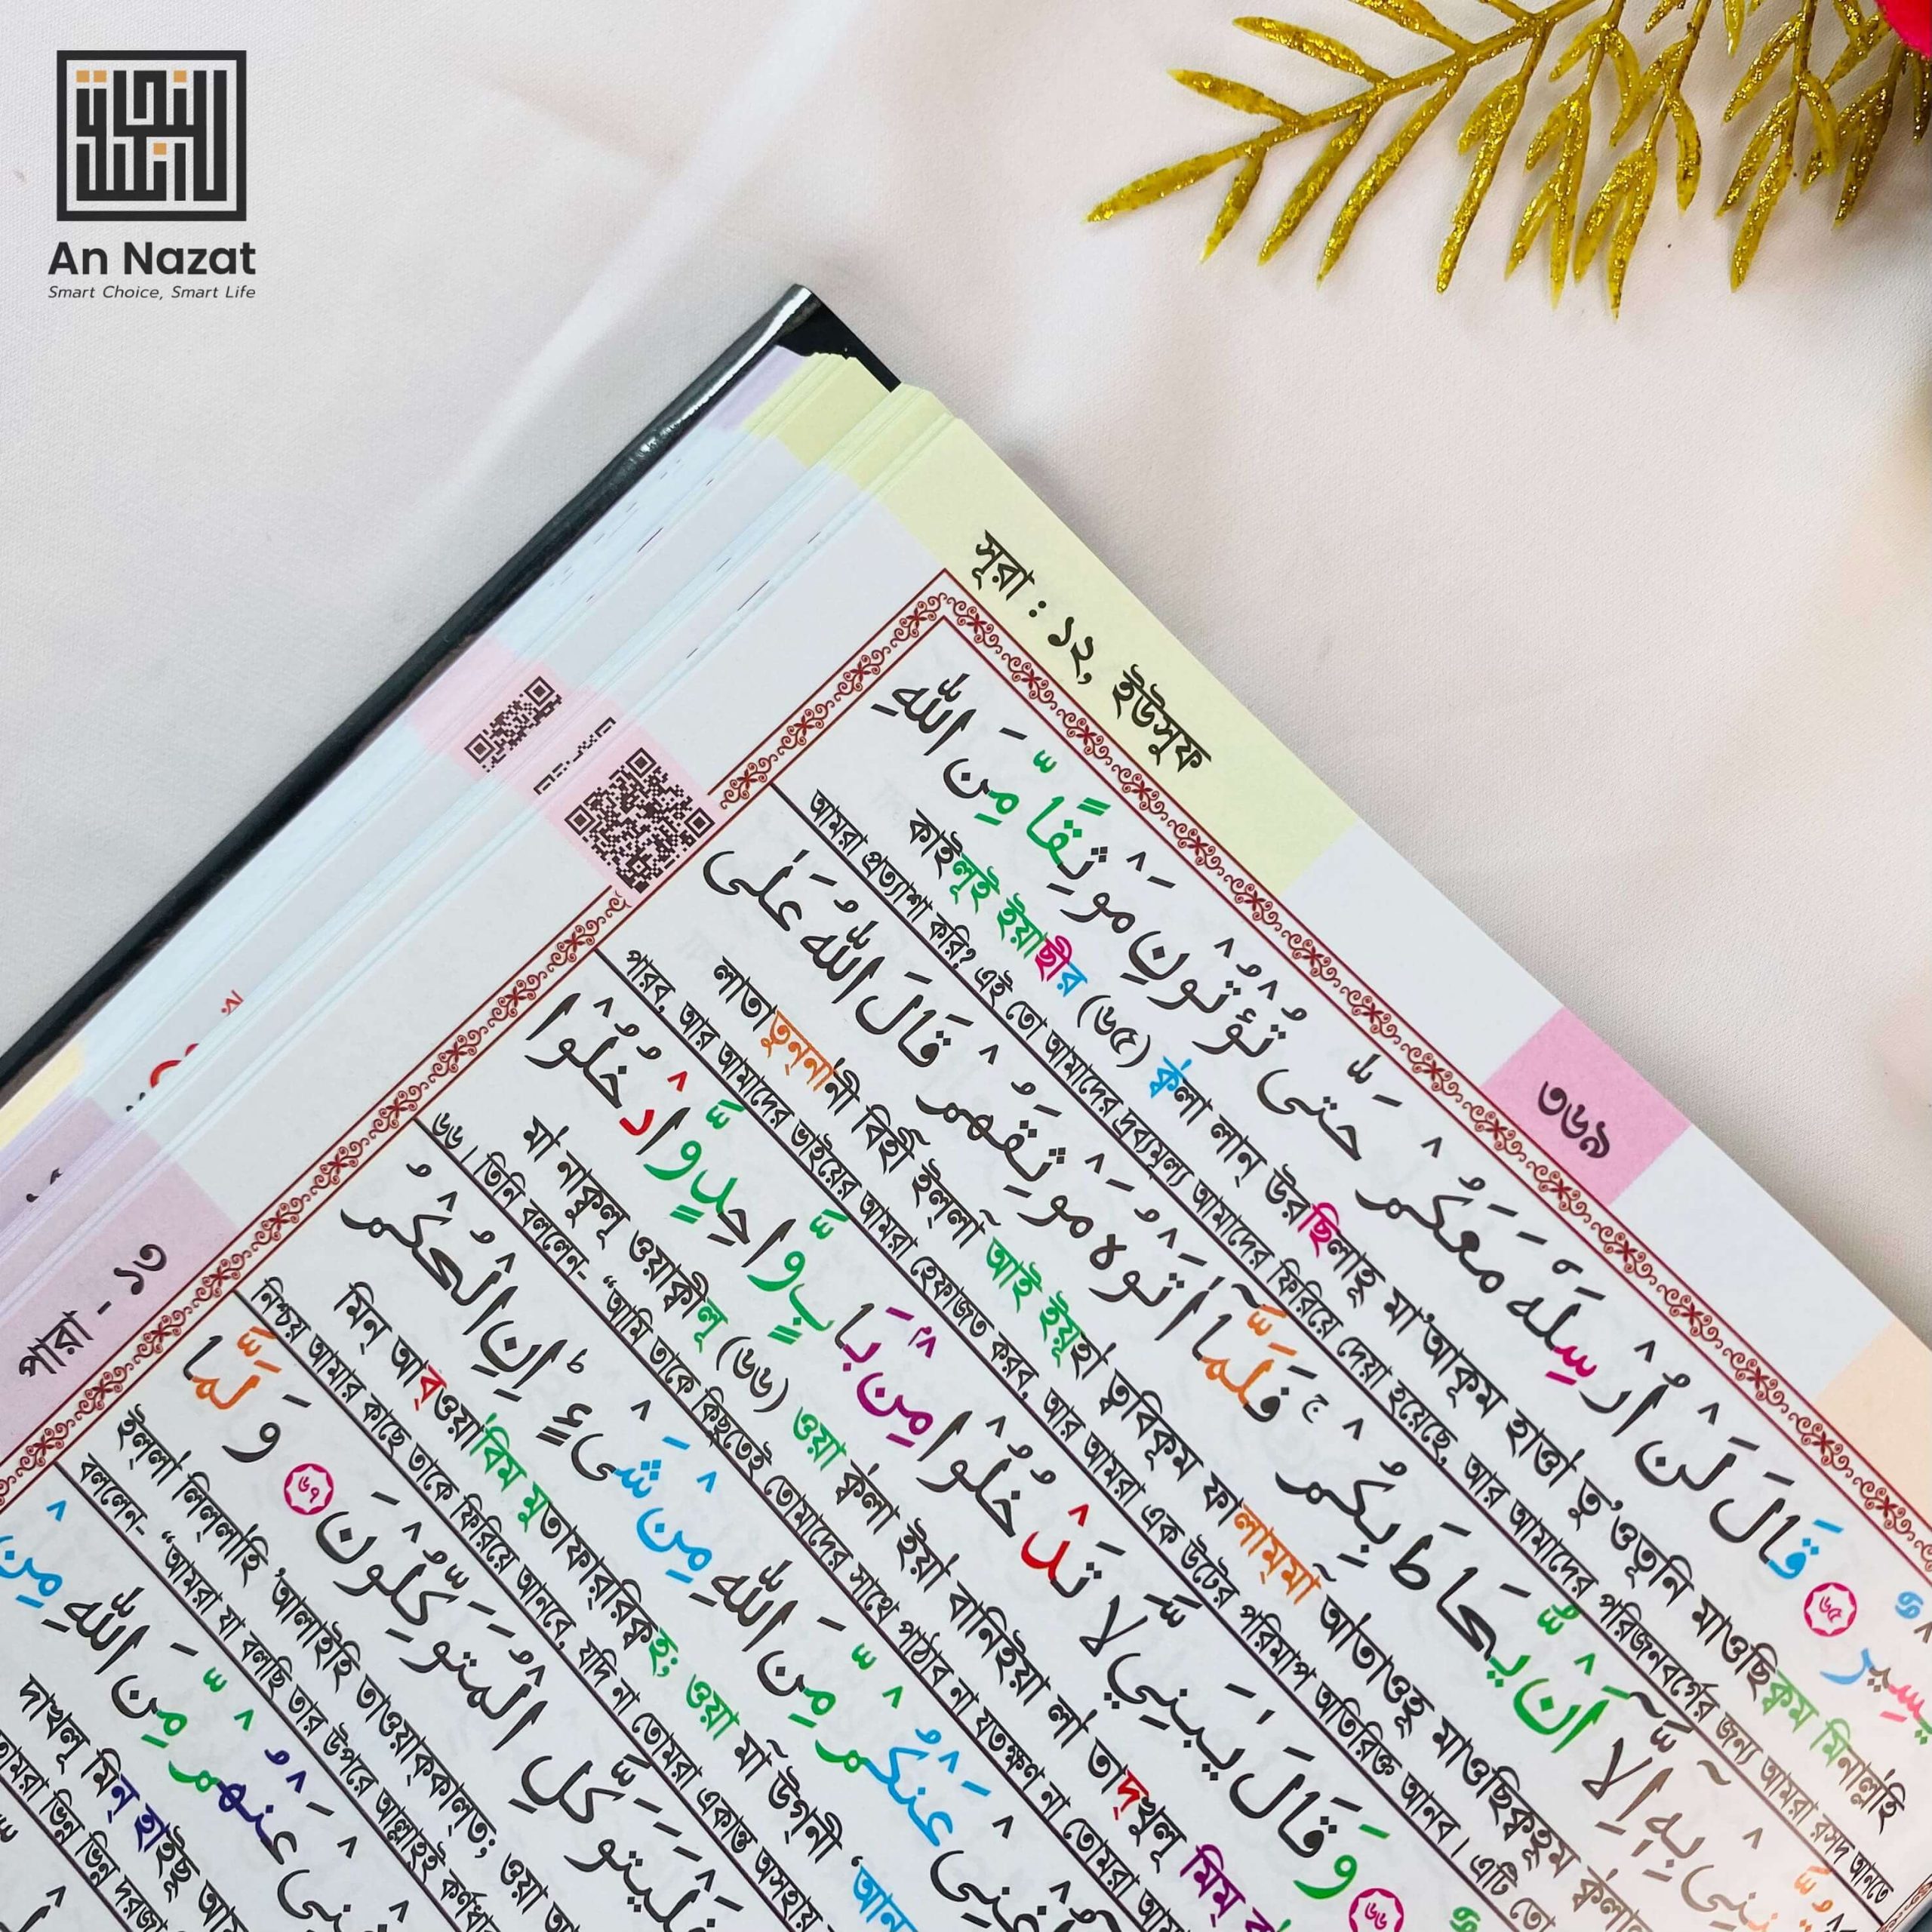 An Nazat
Smart Choice, Smart Life
সূরা : ১২, ইউসুফ
৩৬৯
পারা - ১৩
قَالَ لَنْ أُرْسِلَهٗ مَعَكُمْ حَتّٰى تُؤْتُوْنِ مَوْثِقًا مِّنَ اللّٰهِ
কাইলূই ইয়াছীর (৬৫) ক্বলা লান্ উরছিলাহূ মা‘আকূম হাত্তা তু’ওতূনি মাওছিক্বম মিনাল্লহি
আমরা প্রত্যাশা করি? এই তো আমাদের দ্রব্যমূল্য আমাদের ফিরিয়ে দেয়া হয়েছে, আর আমাদের পরিজনবর্গের জন্য আমরা রসদ আনতে
بِهٖٓ اِلَّآ اَنْ يُّحَاطَ بِكُمْ ۚ فَلَمَّآ اٰتَوْهُ مَوْثِقَهُمْ قَالَ اللّٰهُ عَلٰى
লাতাতুন্নানী বিহী ইল্লা আই ইয়ূহা ত্ববিকূম ফালাম্মা আতাওহূ মাওছিক্বহুম ক্বলাল
পারব, আর আমাদের ভাইয়ের আমরা হেফাজত করব, আর আমরা এক উটের পরিমাপ অতিরিক্ত আনব। এটি তো
وَقَالَ يٰبَنِيَّ لَا تَدْخُلُوْا مِنْۢ بَابٍ وَّاحِدٍ وَّادْخُلُوْا
মা নাকূলূ ওয়াকীলূ (৬৬) ওয়া ক্বলা ইয়া বানিইয়া লা তাদ্খুলূ মিম্
৬৬। তিনি বললেন- “আমি তাকে কিছুতেই তোমাদের সাথে পাঠাব না যতক্ষণ না তোমরা
عَنْكُمْ مِّنَ اللّٰهِ مِنْ شَىْءٍ ؕ اِنِ الْحُكْمُ
মিন্ আব্ওয়াবিম মুতাফার্রিক্বহ; ওয়া মা উগ্নী ‘আন
নিশ্চয় আমার কাছে তাকে ফিরিয়ে আনবে, যদি না তোমরা একান্ত অসহায়
فَلْيَتَوَكَّلِ الْمُتَوَكِّلُوْنَ ۶۷ وَلَمَّا
ইল্লা লিল্লাহি ‘আলাইহি তাওয়াক্কাল্ত; ওয়া
বললেন- “আমরা যা বলছি তার উপরে আল্লাহই
عَنْهُمْ مِّنَ اللّٰهِ مِنْ
দাখলূ মিন্ হাইছু